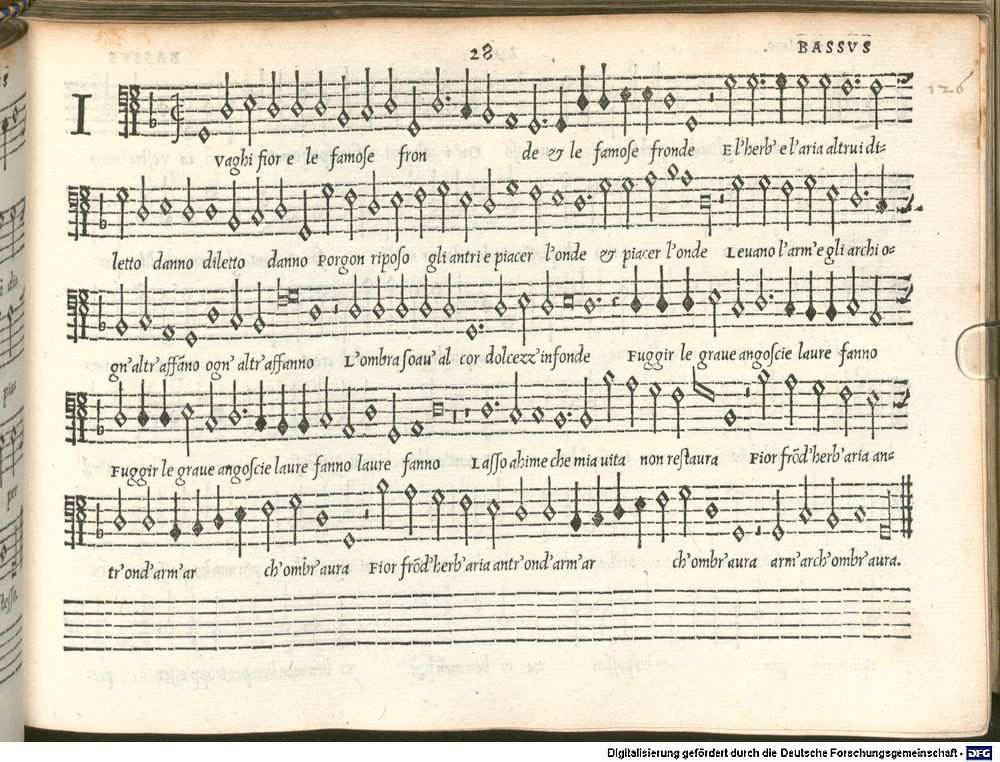 28
BASSVS
126
I
vaghi fior e le famose fron de & le famose fronde E l'herb' e l'aria altrui di=
letto danno diletto danno Porgon riposo gli antri e piacer l'onde & piacer l'onde Leuano l'arm' e gli archi o=
gn' altr' affãno ogn' altr' affanno L'ombra soau' al cor dolcezz' infonde Fuggir le graue angoscie laure fanno
Fuggir le graue angoscie laure fanno laure fanno Lasso ahime che mia uita non restaura Fior frõd' herb' aria an=
tr' ond' arm' ar ch' ombr' aura Fior frõd' herb' aria antr' ond' arm' ar ch' ombr' aura arm' arch' ombr' aura.
Digitalisierung gefördert durch die Deutsche Forschungsgemeinschaft - DFG